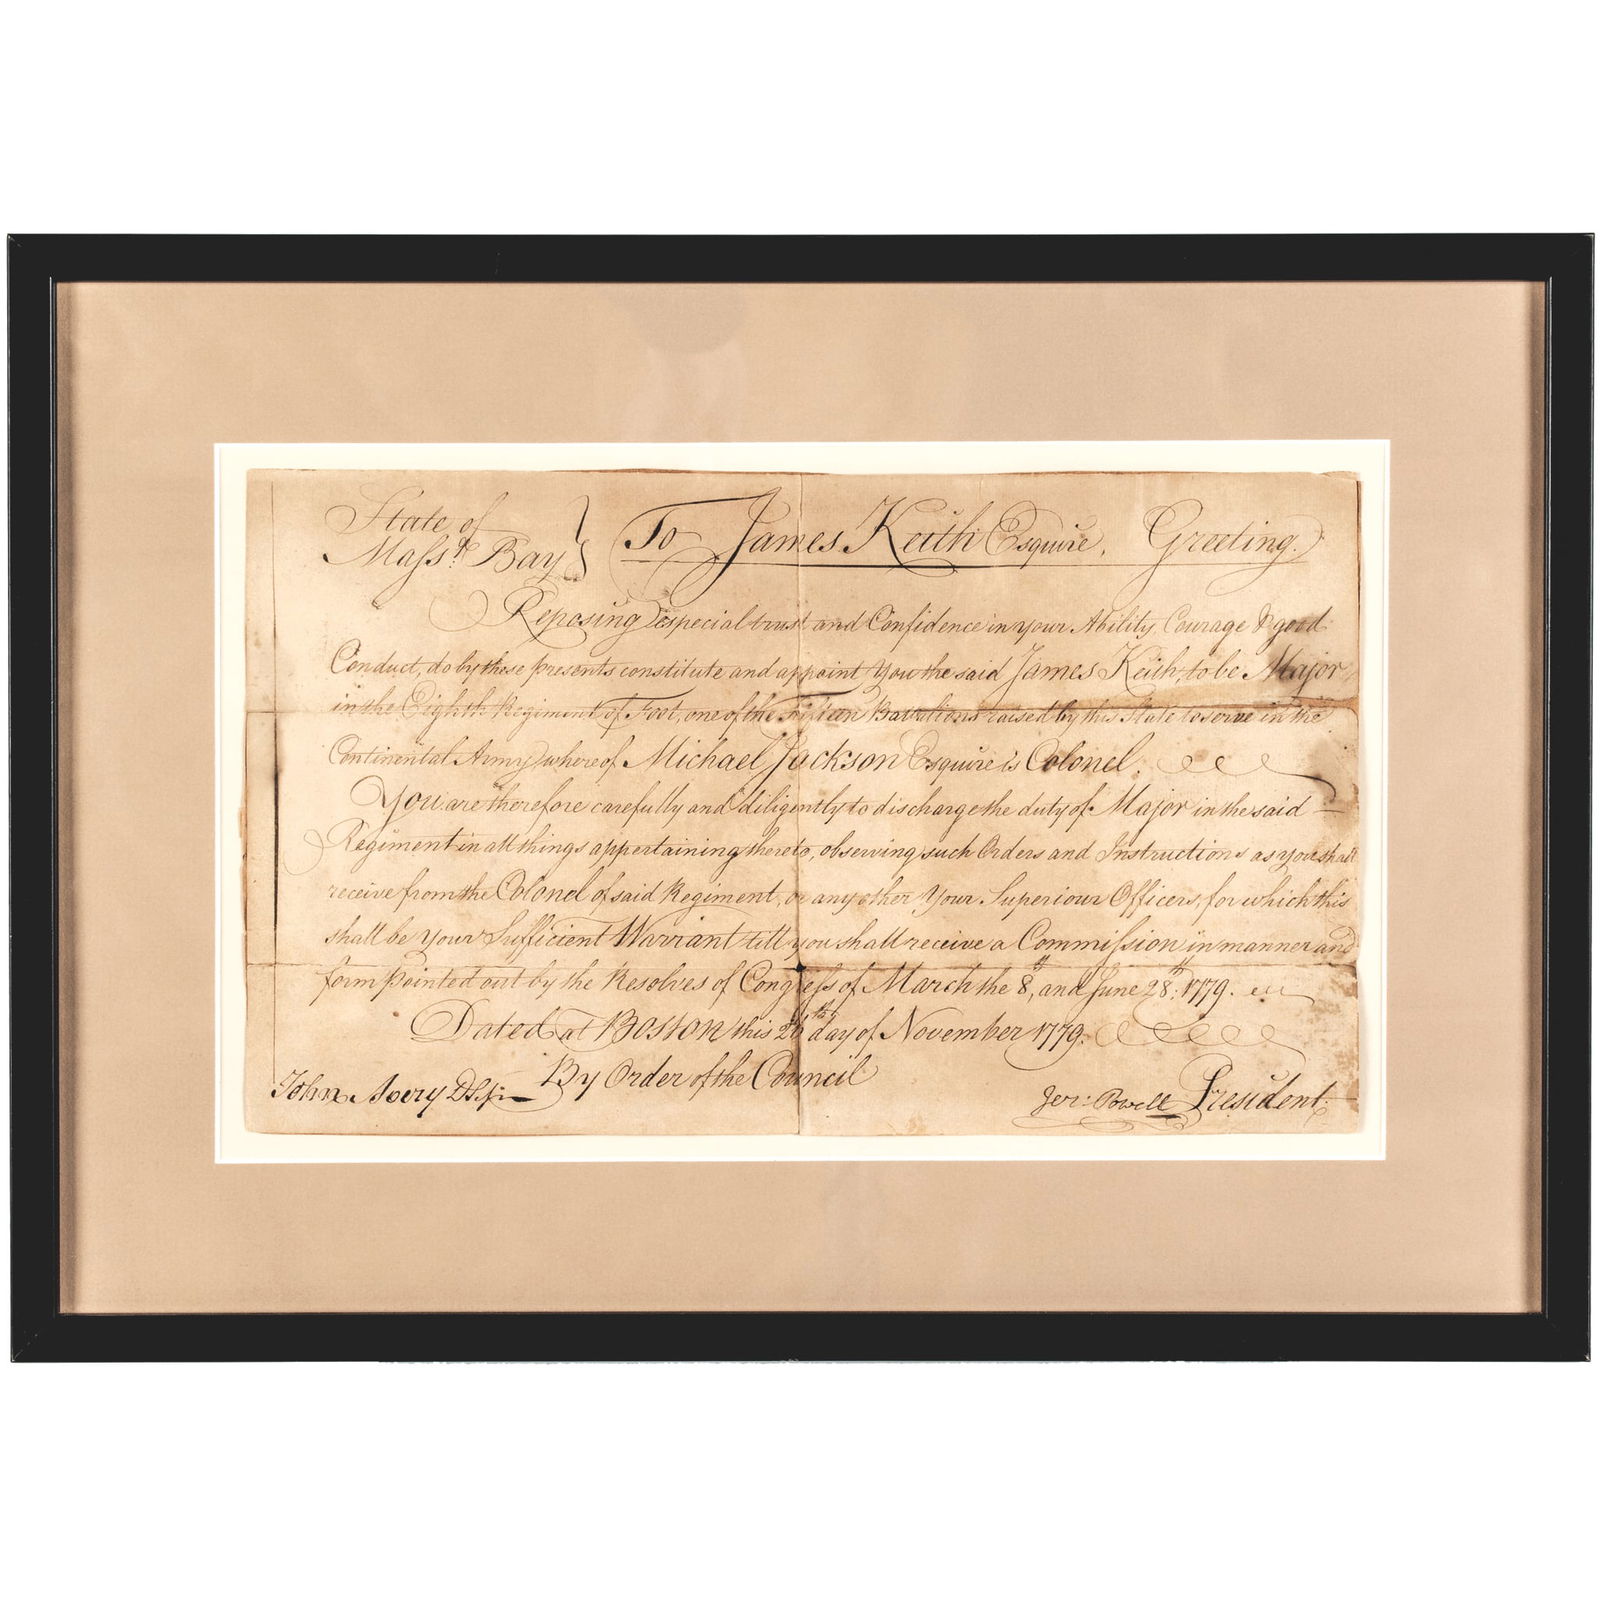 State of
Massts. Bay }
To James Keith Esquire, Greeting.
Reposing especial trust and Confidence in your Ability, Courage & good
Conduct, do by these presents constitute and appoint You the said James Keith, to be Major
in the Eighth Regiment of Foot, one of the Fifteen Battalions raised by this State to serve in the
Continental Army, whereof Michael Jackson Esquire is Colonel.
You are therefore carefully and diligently to discharge the duty of Major in the said
Regiment in all things appertaining thereto, observing such Orders and Instructions as you shall
receive from the Colonel of said Regiment, or any other Your Superiour Officers, for which this
shall be your Sufficient Warrant till you shall receive a Commission in manner and
form pointed out by the Resolves of Congress of March the 8th, and June 28th, 1779.
Dated at Boston this 26th day of November 1779.
By Order of the Council
John Avery D Sy
Jer: Powell President.